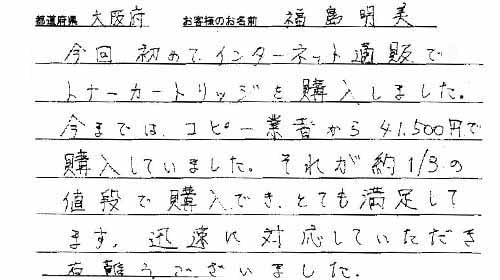 都道府県 大阪府 お客様のお名前 福島明美
今回初めてインターネット通販で
トナーカートリッジを購入しました。
今までは、コピー業者から41,500円で
購入していました。それが約1/3の
値段で購入でき、とても満足して
ます。迅速に対応していただき
有難うございました。